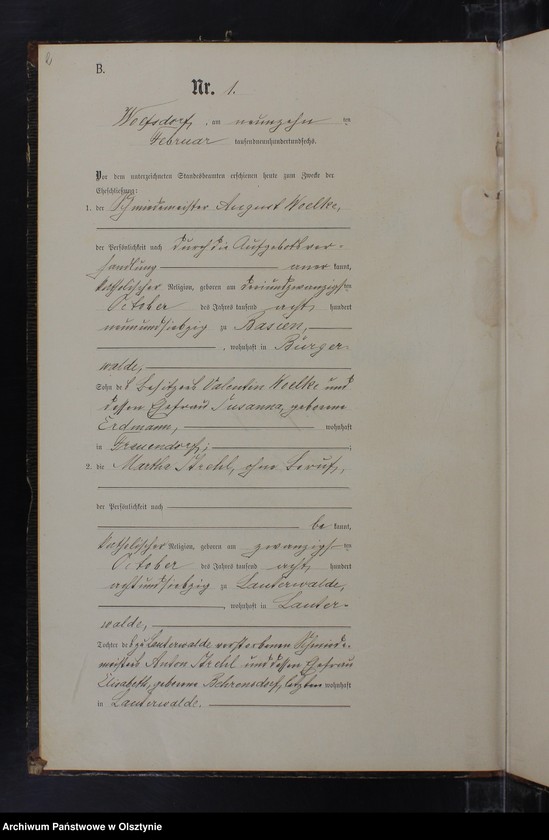 B.
Nr. 1.
Wolfsdorf, am neunzehn ten
Februar tausendneunhundertundsechs.
Vor dem unterzeichneten Standesbeamten erschienen heute zum Zwecke der
Eheschließung:
1. der Schmiedemeister August Woelke,
der Persönlichkeit nach durch die Aufgebotsver-
handlung anerkannt,
katholischer Religion, geboren am dreiundzwanzigsten
October des Jahres tausend acht hundert
neunundsiebzig zu Basien,
, wohnhaft in Bürger-
walde,
Sohn des Besitzers Valentin Woelke und
dessen Ehefrau Susanna, geborene
Erdmann, wohnhaft
in
2. die Martha Strehl, ohne Beruf,
der Persönlichkeit nach
be kannt,
katholischer Religion, geboren am zwanzigsten
October des Jahres tausend acht hundert
achtundsiebzig zu Lauterwalde,
, wohnhaft in Lauter-
walde,
Tochter des zu Lauterwalde verstorbenen Schmiede-
meisters Anton Strehl und dessen Ehefrau
Elisabeth, geborene Behrensdorf, letztere wohnhaft
in Lauterwalde.
Archiwum Państwowe w Olsztynie